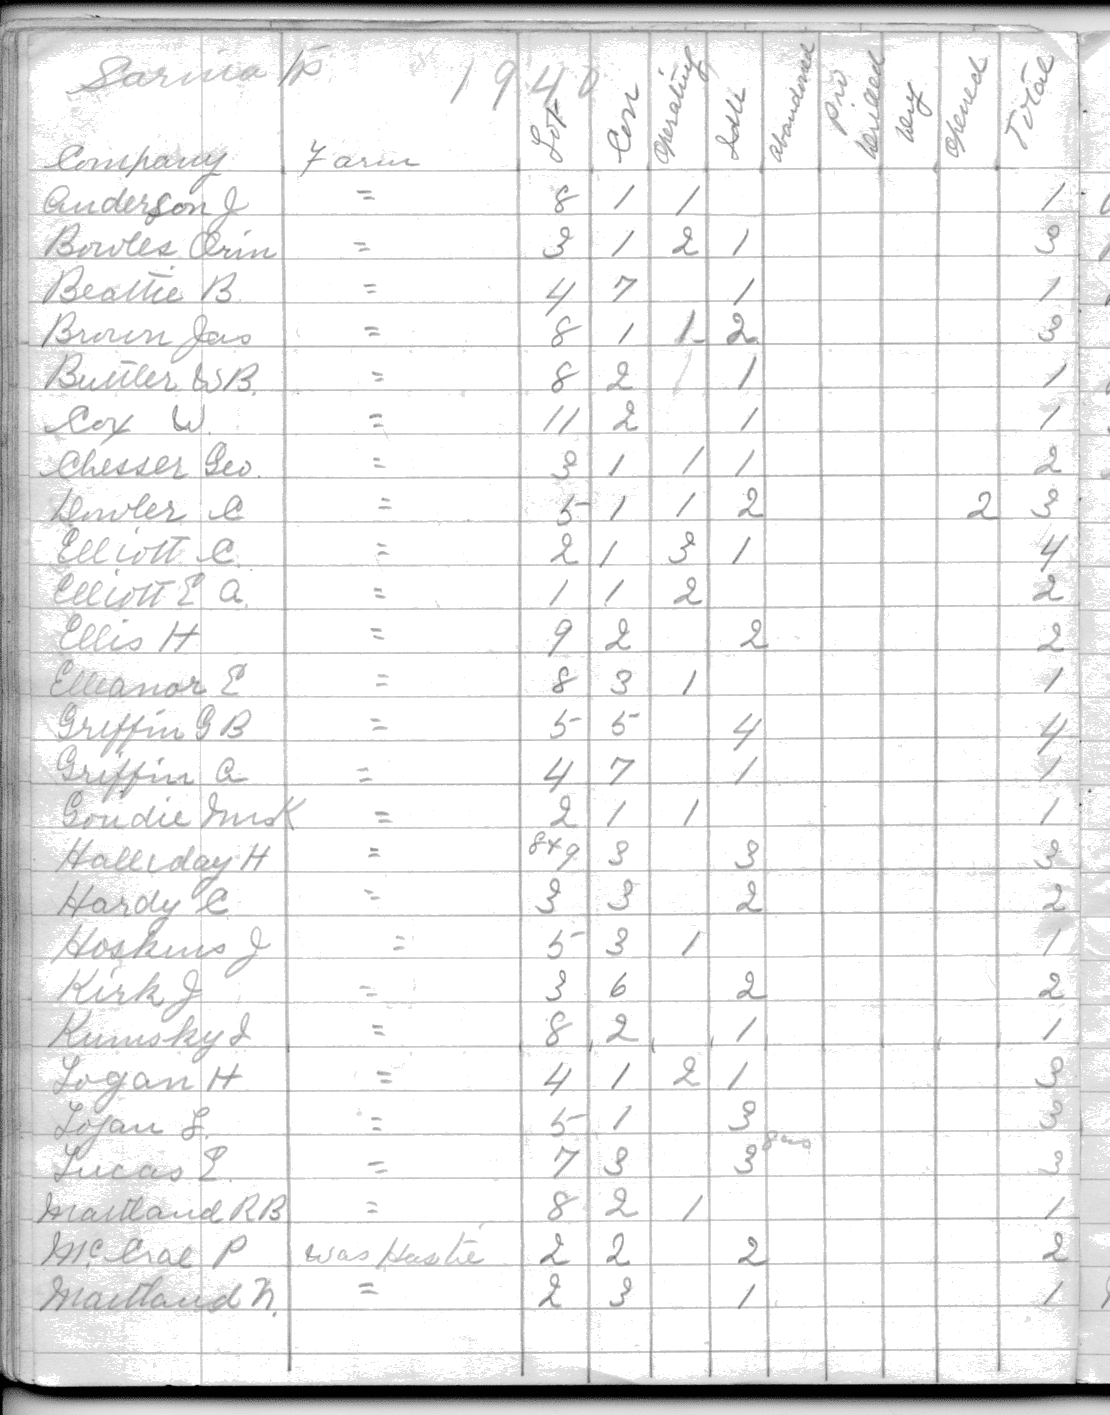 Sarnia Tp 1940
Company Farm Lot Con Operating Idle Abandoned Pro Dry Opened Total
Anderson J = 8 1 1 1
Bowles Orin = 3 1 2 1 3
Beattie B = 4 7 1 1
Brown Jas = 8 1 1 2 3
Buttler W B. = 8 2 1 1
Cox W. = 11 2 1 1
Chesser Geo. = 3 1 1 1 2
Dowler C = 5 1 1 2 2 3
Elliott C. = 2 1 3 1 4
Elliott E A. = 1 1 2 2
Ellis H = 9 2 2 2
Elleanor E = 8 3 1 1
Griffin G B = 5 5 4 4
Griffin A = 4 7 1 1
Goudie = 2 1 1 1
Halliday H = 8+9 3 3 3
Hardy C = 3 3 2 2
Hoskins J = 5 3 1 1
Kirk J = 3 6 2 2
Kumsky = 8 2 1 1
Logan H = 4 1 2 1 3
Logan L. = 5 1 3 3
Lucas E. = 7 3 3 gas 3
Maitland R B = 8 2 1 1
McCrae P was Hastie 2 2 2 2
Maitland N. = 2 3 1 1